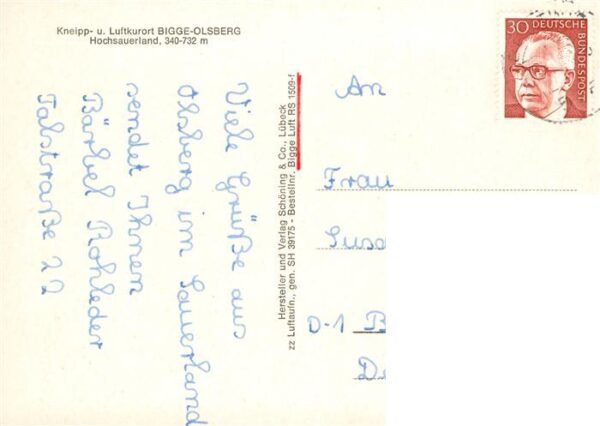 Kneipp- u. Luftkurort BIGGE-OLSBERG
Hochsauerland, 340-732 m
Viele Grüße aus
Olsberg im Sauerland
sendet Ihnen
Bärbel Rohleder
Talstraße 22
Hersteller und Verlag Schöning & Co., Lübeck
zz Luftaufn., gen. SH 39175 - Bestellnr. Bigge Luft RS 1509-f
30
DEUTSCHE
BUNDESPOST
An
Frau
Susa
D-1 B